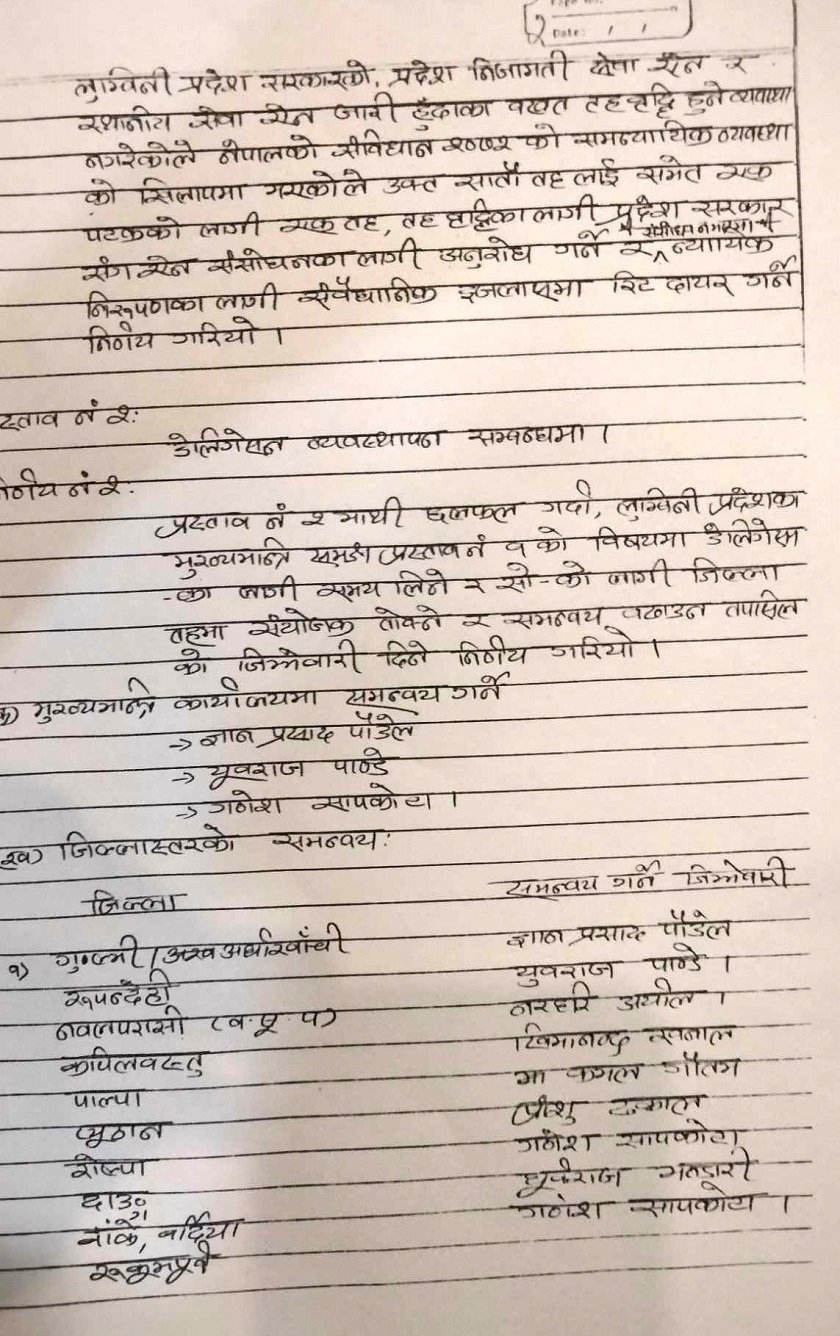 Date: / /
लुम्विनी प्रदेश सरकारको, प्रदेश निजामती सेवा ऐन र
स्थानीय सेवा ऐन जारी हुँदाका वखत तह वृद्धि हुने व्यवस्था
नगरेकोले नेपालको संविधान २०७२ को समन्यायिक व्यवस्था
को खिलापमा गएकोले उक्त सातौ तह लाई समेत एक
पटकको लागी एक तह, तह वृद्धिका लागी प्रदेश सरकार
संग ऐन संसोधनका लागी अनुरोध गर्ने र न्यायिक
निरूपणका लागी संवैधानिक इजलासमा रिट दायर गर्ने
निर्णय गरियो ।
स्ताव नं २:
डेलिगेसन व्यवस्थापन सम्बन्धमा ।
र्णय नं २:
प्रस्ताव नं २ माथी छलफल गर्दा, लुम्विनी प्रदेशका
मुख्यमन्त्रि समक्ष प्रस्ताव नं १ को विषयमा डेलिगेसन
का लागी समय लिने र सो-को लागी जिल्ला
तहमा संयोजक तोक्ने र समन्वय वढाउन तपासिल
को जिम्मेवारी दिने निर्णय गरियो ।
क) मुख्यमन्त्रि कार्यालयमा समन्वय गर्ने
→ ज्ञान प्रसाद पौडेल
→ युवराज पाण्डे
→ गणेश सापकोटा ।
ख) जिल्लास्तरको समन्वय:
जिल्ला समन्वय गर्ने जिम्मेवारी
१) गुल्मी / अर्घाखाँची ज्ञान प्रसाद पौडेल
रूपन्देही युवराज पाण्डे ।
नवलपरासी (व.सु.प) नरहरि अर्याल ।
कपिलवस्तु खिमानन्द
पाल्पा मा कमल गौतम
प्यूठान
रोल्पा गणेश सापकोटा
दाङ भण्डारी
बाँके, बर्दिया गणेश सापकोटा ।
रूकुमपूर्व